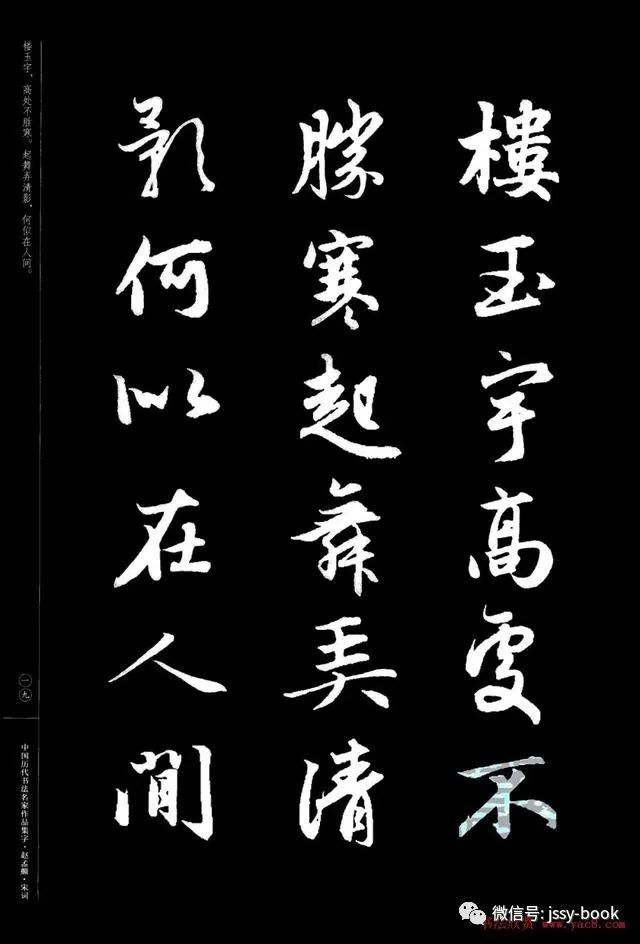 樓玉宇高處不
勝寒起舞弄清
影何似在人間
楼玉宇,高处不胜寒。起舞弄清影,何似在人间。
一九
中国历代书法名家作品集字·赵孟頫·宋词
微信号: jssy-book
书法欣赏 www.yac8.com